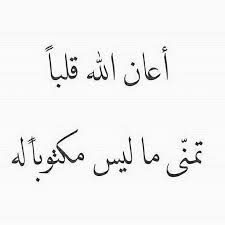 أعان الله قلباً
تمنّى ما ليس مكتوباً له